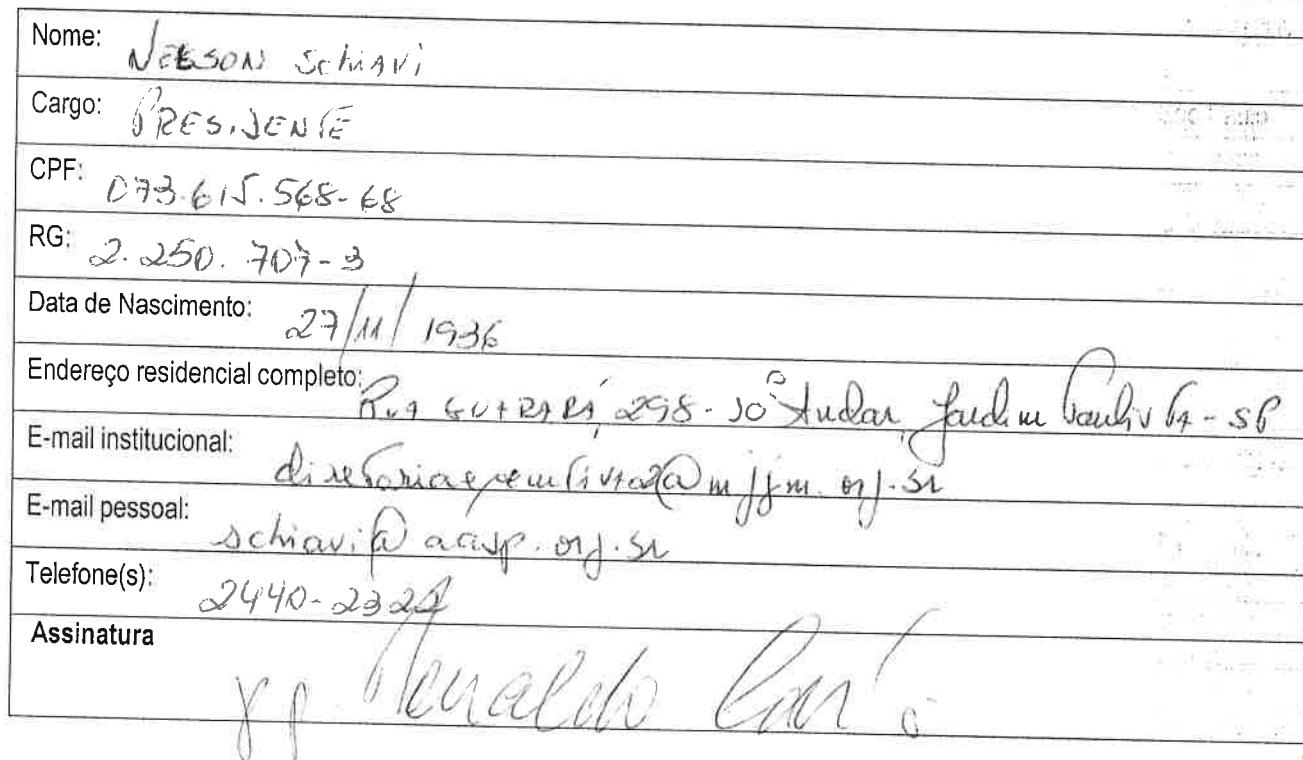 Nome: NELSON SCHIAVI
Cargo: PRESIDENTE
CPF: 073.615.568-68
RG: 2.250.707-3
Data de Nascimento: 27/11/1936
Endereço residencial completo: RUA GUARARÁ, 298 - 10º Andar, Jardim Paulista - SP
E-mail institucional: diretoriaexecutiva2@mjjm.org.br
E-mail pessoal: schiavi@aasp.org.br
Telefone(s): 2440-2322
Assinatura